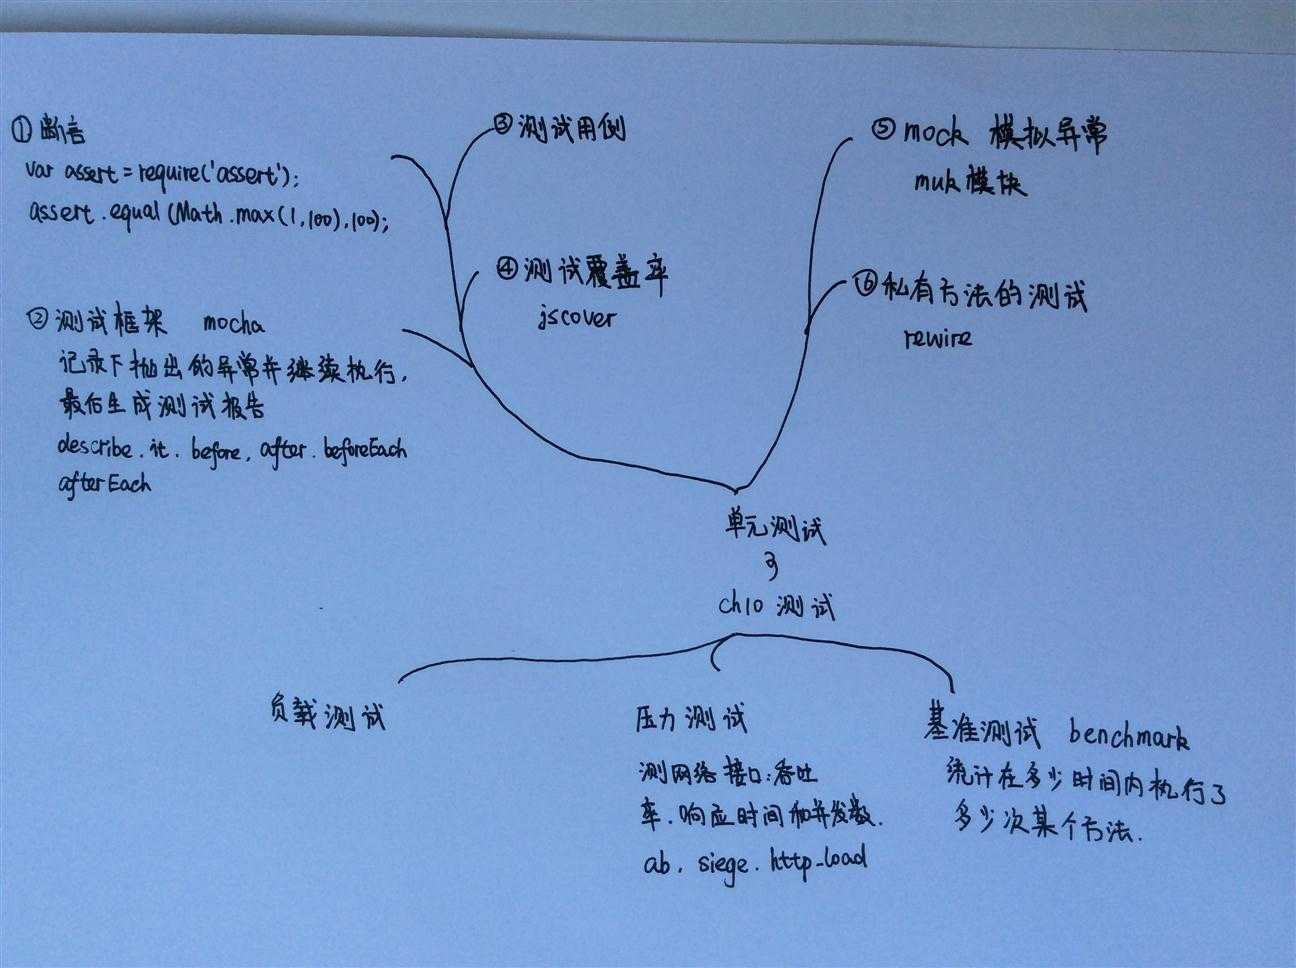 ① 断言
var assert = require('assert');
assert.equal(Math.max(1,100),100);
② 测试框架 mocha
记录下抛出的异常并继续执行,
最后生成测试报告
describe、it、before、after、beforeEach
afterEach
③ 测试用例
④ 测试覆盖率
jscover
⑤ mock 模拟异常
muk模块
⑥ 私有方法的测试
rewire
单元测试
ch10 测试
负载测试
压力测试
测网络接口:吞吐
率、响应时间和并发数.
ab、siege、http_load
基准测试 benchmark
统计在多少时间内执行了
多少次某个方法.